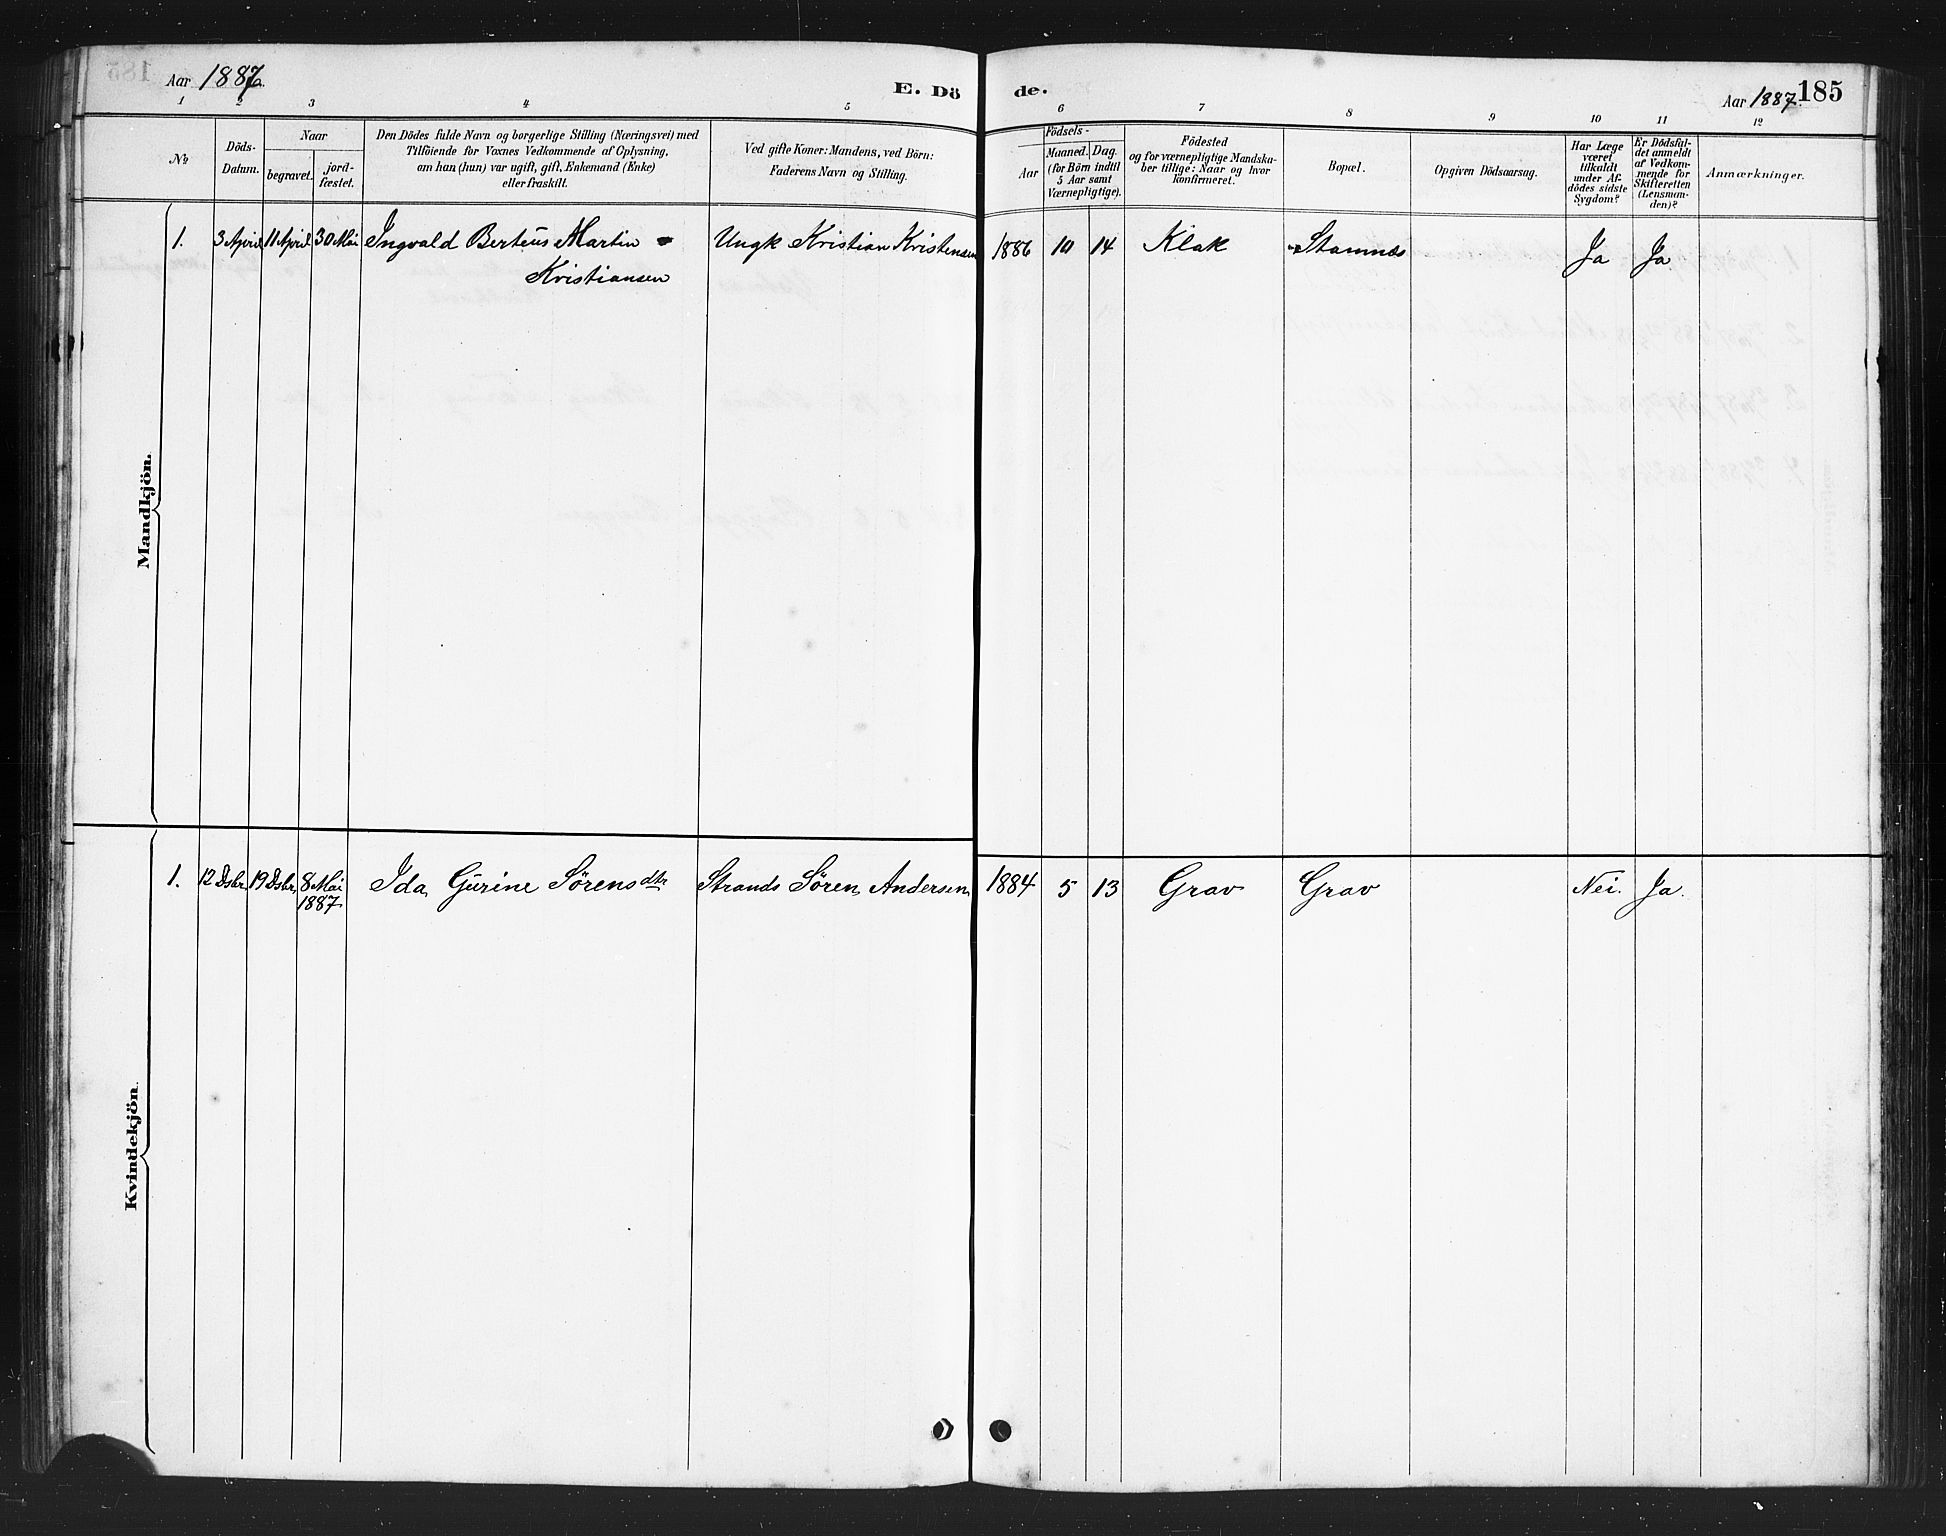 Aar 1887.
E. Dö
de.
Aar 1887.
185
1 2 3 4 5 6 7 8 9 10 11 12
№
Döds-
Datum.
Naar
begravet.
jord-
fæstet.
Den Dödes fulde Navn og borgerlige Stilling (Næringsvei) med
Tilföiende for Voxnes Vedkommende af Oplysning,
om han (hun) var ugift, gift, Enkemand (Enke)
eller fraskilt.
Ved gifte Koner: Mandens, ved Börn:
Faderens Navn og Stilling.
Födsels-
Aar
Maaned. Dag.
(for Börn indtil
5 Aar samt
Værnepligtige).
Födested
og for værnepligtige Mandska-
ber tillige: Naar og hvor
konfirmeret.
Bopæl.
Opgiven Dödsaarsag.
Har Læge
været
tilkaldt
under Af-
dödes sidste
Sygdom?
Er Dödsfal-
det anmeldt
af Vedkom-
mende for
Skifteretten
(Lensman-
den)?
Anmærkninger.
Mandkjön.
1. 3 April 11 April 30 Mai Ingvald Berteus Martin Ungk Kristian Kristensen 1886 10 14 Klak Stamnæs Ja Ja
Kristiansen
Kvindekjön.
1. 12 Dsbr. 19 Dsbr. 8 Mai Ida Gurine Sörensdtr Strands Sören Andersen 1884 5 13 Grav Grav Nei. Ja.
1887